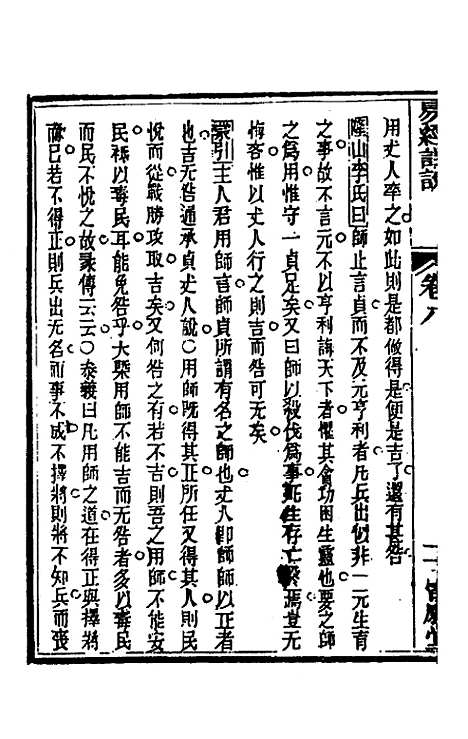 易經詳說 卷八
用丈人率之如此則是都做得是便是吉了還有甚咎
隆山李氏曰師止言貞而不及元亨利者凡兵出似非一元生育
之事故不言元不以亨利誨天下者懼其貪功困生靈也要之師
之爲用惟守一貞足矣又曰師以殺伐爲事死生存亡繫焉豈无
悔吝惟以丈人行之則吉而咎可无矣
蒙引主人君用師言師貞所謂有名之師也丈人卽師師以正者
也吉无咎通承貞丈人說○用師旣得其正所任又得其人則民
悅而從戰勝攻取吉矣又何咎之有若不吉則吾之用師不能安
民祗以毒民耳能免咎乎大槩用師不能吉而无咎者多以毒民
而民不悅之故彖傳云云○泰羲曰凡用師之道在得正與擇將
而已若不得正則兵出无名而事不成不擇將則將不知兵而喪